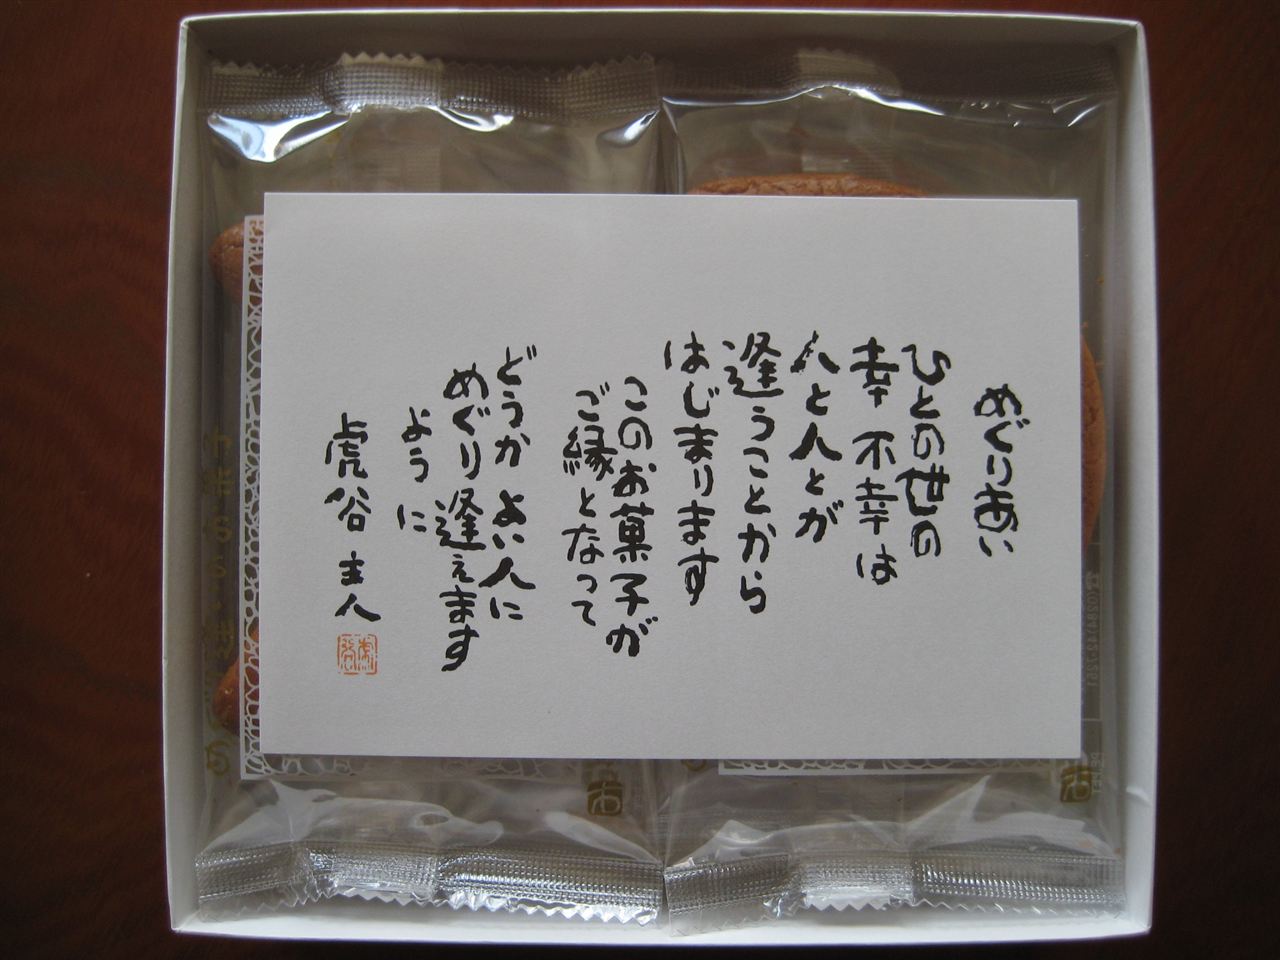 めぐりあい
ひとの世の
幸 不幸は
人と人とが
逢うことから
はじまります
このお菓子が
ご縁となって
どうか よい人に
めぐり逢えます
ように
虎谷 主人